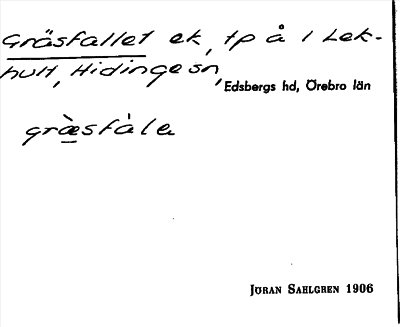 Gräsfallet ek, tp å 1 Lek-
hult, Hidinge sn,
Edsbergs hd, Örebro län
grὰ̈sfàla
JÖRAN SAHLGREN 1906